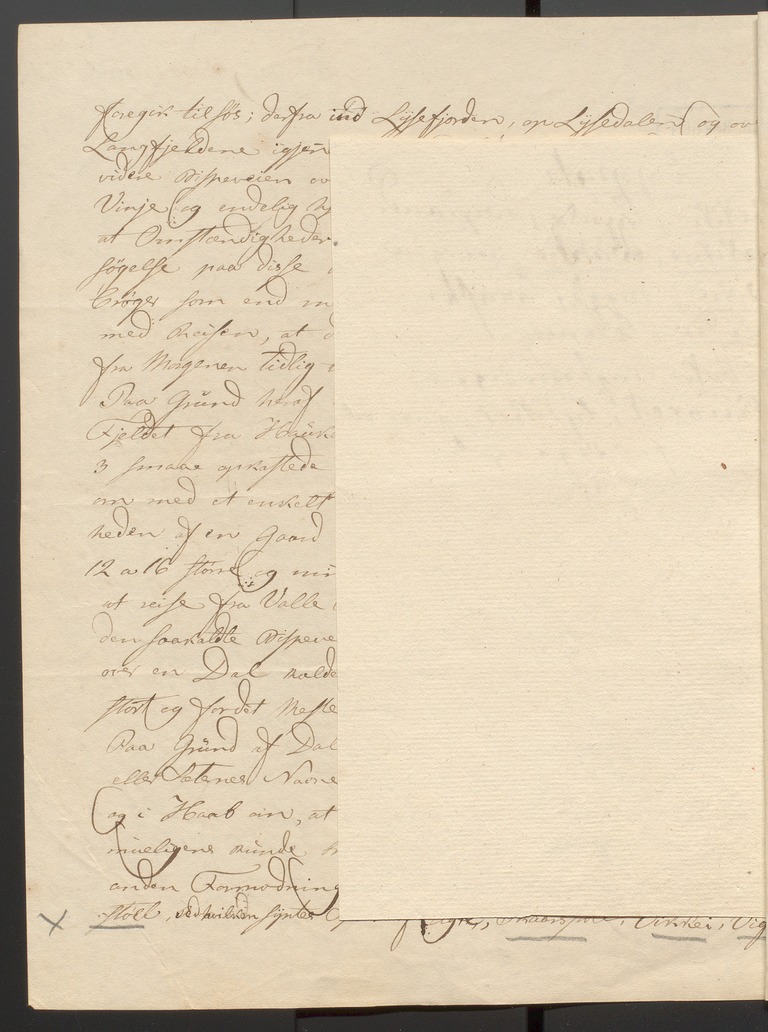 foregik tilsøs; derfra ind Lysefjorden, op Lysedalen og ov
Langfjeldene igjen
videre Bispeveien ov
Vinje og endelig
at Omstændigheder
søgelse paa disse
Crøger som end
med Reisen, at
fra Morgenen tidlig
Paa Grund heraf
Fjeldet fra Hauke
3 smaae opkastede
om med et enkelt
heden af en Gaard
12 a 16 større og min
at reise fra Valle
den saakaldte Bispeve
over en Dal kalde
stort og fordet Meste
Paa Grund af Dal
eller Sæternes Navne
og i Haab om, at
mueligens kunde
anden Formodning
støll, ved hvilken syntes